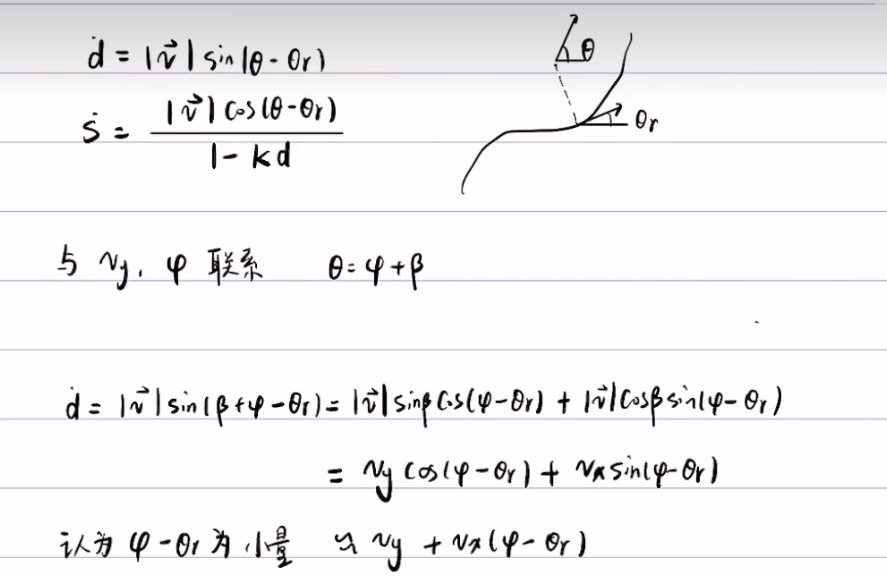 ḋ = |v⃗| sin(θ - θr)
ṡ = |v⃗| cos(θ-θr) / 1 - kd
θ
θr
与 vy, φ 联系 θ = φ + β
ḋ = |v⃗| sin(β + φ - θr) = |v⃗| sinβ cos(φ - θr) + |v⃗| cosβ sin(φ - θr)
= vy cos(φ - θr) + vx sin(φ - θr)
认为 φ - θr 为小量 ≈ vy + vx(φ - θr)